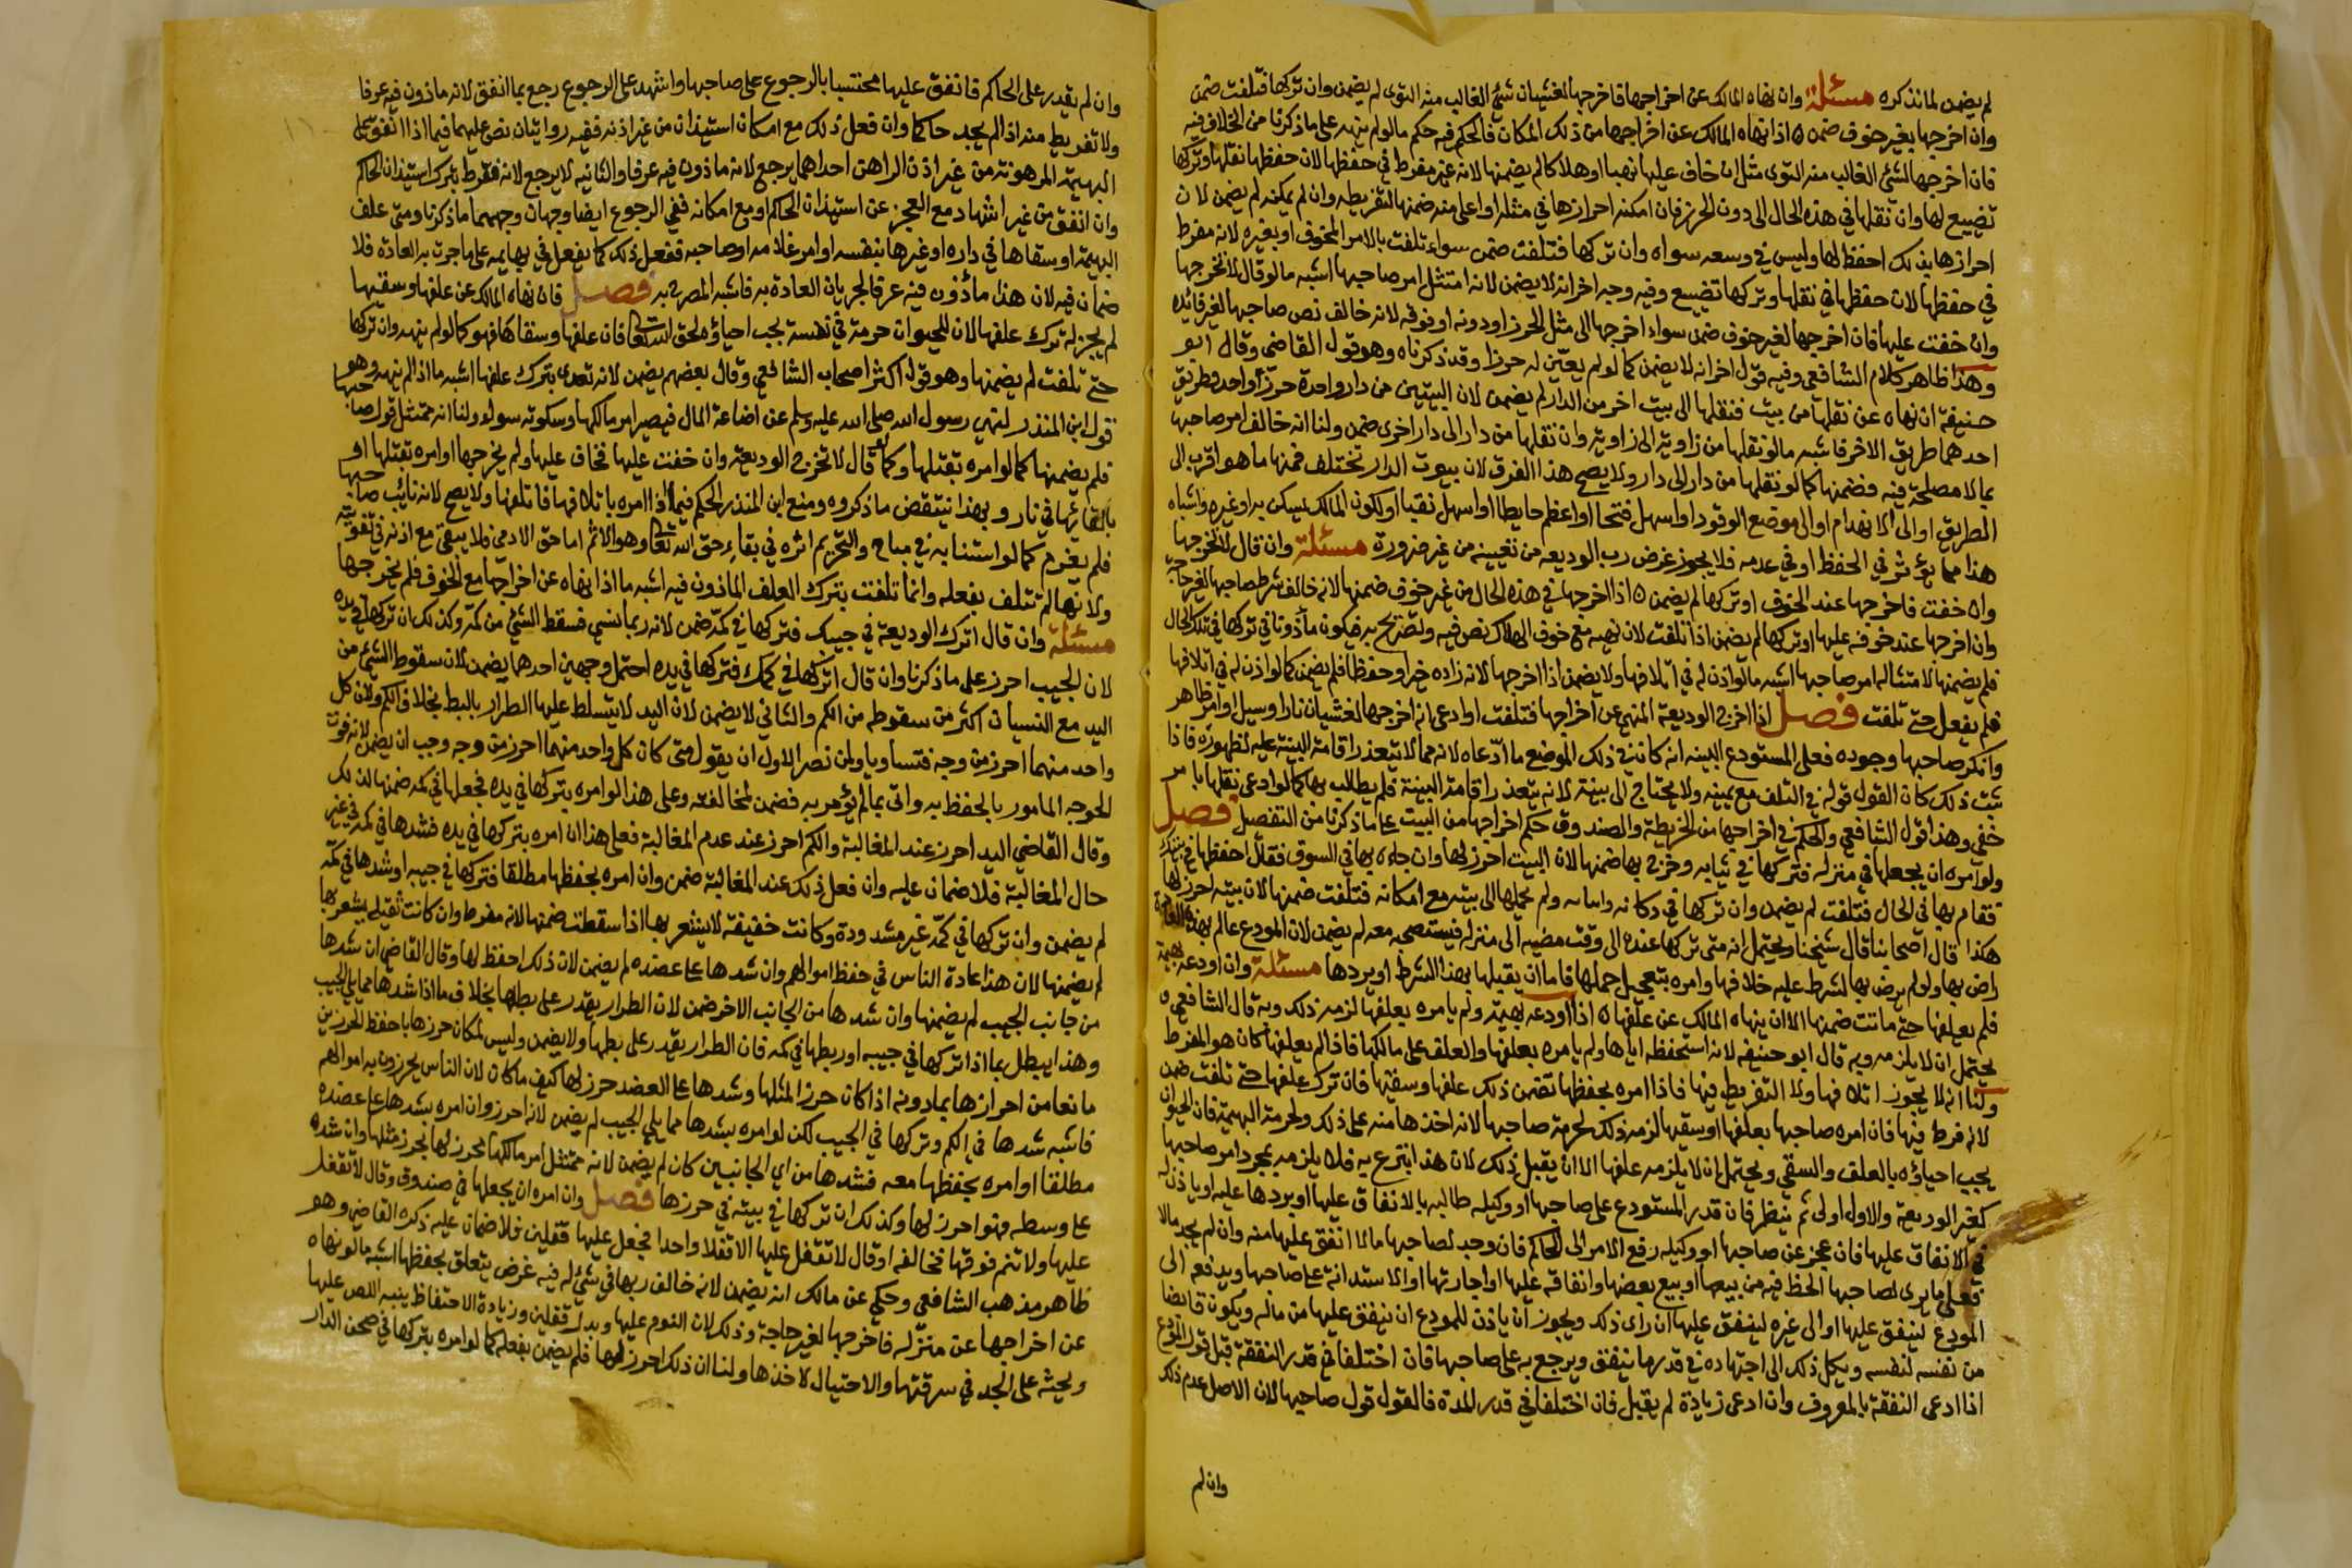 لم يضمن لما نذكره مسئلة وان نهاه المالك عن اخراجها فاخرجها لغشيان شئ الغالب منه التوى لم يضمن وان تركها فتلفت ضمن
وان اخرجها بغير خوف ضمن ه اذا نهاه المالك عن اخراجها من ذلك المكان فالحكم فيه حكم مالو لم ينهه على ما ذكرنا من الخلاف فيه
فان اخرجها لشئ الغالب منه التوى مثل ان خاف عليها نهبا او هلاكا لم يضمنها لانه غير مفرط في حفظها لان حفظها نقلها وتركها
تضييع لها وان نقلها في هذه الحال الى دون الحرز فان امكنه احرازها في مثله او اعلى منه ضمنها لتفريطه وان لم يمكنه لم يضمن لان
احرازها بذلك احفظ لها وليس في وسعه سواه وان تركها فتلفت ضمن سواء تلفت بالامر المخوف او بغيره لانه مفرط
في حفظها لان حفظها في نقلها وتركها تضييع وفيه وجه اخر انه لا يضمن لانه امتثل امر صاحبها اشبه مالو قال لا تخرجها
وان خفت عليها فان اخرجها لغير خوف ضمن سواء اخرجها الى مثل الحرز او دونه او فوقه لانه خالف نص صاحبها لغير فائدة
وهذا ظاهر كلام الشافعي وفيه قول اخر انه لا يضمن كما لو لم يعين له حرزا وقد ذكرناه وهو قول القاضي وقال ابو
حنيفة ان نهاه عن نقلها من بيت فنقلها الى بيت اخر من الدار لم يضمن لان البيتين من دار واحدة حرز واحد وطريق
احدهما طريق الاخر فاشبه مالو نقلها من زاوية الى زاوية وان نقلها من دار الى دار اخرى ضمن ولنا انه خالف امر صاحبها
بما لا مصلحة فيه فضمنها كما لو نقلها من دار الى دار ولا يصح هذا الفرق لان بيوت الدار تختلف فمنها ما هو اقرب الى
الطريق او الى الانهدام او الى موضع الوقود او اسهل فتحا او اعظم حايطا او اسهل نقبا او لكون المالك يسكن به او غيره واشباه
هذا مما يؤثر في الحفظ او في عدمه فلا يجوز غرض رب الوديعه من تعيينه من غير ضرورة مسئلة وان قال لا تخرجها
وان خفت فاخرجها عند الخوف او تركها لم يضمن ه اذا اخرجها في هذه الحال من غير خوف ضمنها لانه خالف شرط صاحبها لغير حاجة
وان اخرجها عند خوفه عليها او تركها لم يضمن اذا تلفت لان نهيه مع خوف الهلاك نص فيه وتصريح به فيكون مأذونا في تركها في تلك الحال
فلم يضمنها لامتثاله امر صاحبها اشبه مالو اذن له في اتلافها ولا يضمن اذا اخرجها لانه زاده خيرا وحفظا فلم يضمن كما لو اذن له في اتلافها
فلم يفعل حتى تلفت فصل اذا اخرج الوديعة المنهي عن اخراجها فتلفت او ادعى انه اخرجها لغشيان نار او سيل او امر ظاهر
وانكر صاحبها وجوده فعلى المستودع البينه انه كان في ذلك الموضع ما ادعاه لانه مما لا يتعذر اقامة البينة عليه لظهوره فاذا
ثبت ذلك كان القول قوله في التلف مع يمينه ولا يحتاج الى بينة لانه يتعذر اقامة البينة فلم يطالب بها كما لو ادعى تلفها بامر
خفي وهذا قول الشافعي والحكم في اخراجها من الخريطة والصندوق حكم اخراجها من البيت على ما ذكرنا من التفصيل فصل
ولو امره ان يجعلها في منزله فتركها في ثيابه وخرج بها ضمنها لان البيت احرز لها وان جاءه بها في السوق فقال احفظها في بيتك
فقام بها في الحال فتلفت لم يضمن وان تركها في دكانه ولم يحملها الى بيته مع امكانه فتلفت ضمنها لان بيته احرز لها
هكذا قال اصحابنا قال شيخنا ويحتمل انه متى تركها عنده الى وقت مضيه الى منزله فيستصحبه معه لم يضمن لان المودع عالم بهذه العادة
راض بها ولو لم يرض بها لشرط عليه خلافها وامره بتعجيل حملها فاما ان يقبلها بهذا الشرط او يردها مسئلة وان اودعه بهيمة
فلم يعلفها حتى ماتت ضمنها الا ان ينهاه المالك عن علفها ه اذا اودعه بهيمة ولم يامره بعلفها لزمه ذلك وبه قال الشافعي ه
يحتمل ان لا يلزمه وبه قال ابو حنيفة لانه استحفظه اياها ولم يامره بعلفها والعلف على مالكها فاذا لم يعلفها كان هو المفرط
ولنا انه لا يجوز اتلافها ولا التفريط فيها فاذا امره بحفظها تضمن ذلك علفها وسقيها فان ترك علفها حتى تلفت ضمن
لانه فرط فيها فان امره صاحبها بعلفها وسقيها لزمه ذلك لحرمة صاحبها لانه اخذها منه على ذلك ولحرمة البهيمة فان الحيوان
يجب احياؤه بالعلف والسقي ويحتمل ان لا يلزمه علفها الا ان يقبل ذلك لان هذا تبرع به فلا يلزمه بمجرد امر صاحبها
كغير الوديعة والاول اولى ثم ينظر فان قدر المستودع على صاحبها او وكيله طالبه بالانفاق عليها او يردها عليه او ياذن له
في الانفاق عليها فان عجز عن صاحبها او وكيله رفع الامر الى الحاكم فان وجد لصاحبها مالا انفق عليها منه وان لم يجد مالا
فعل ما يرى لصاحبها الحظ فيه من بيعها او بيع بعضها وانفاقه عليها او اجارتها او الاستدانة على صاحبها ويدفعه الى
المودع لينفق عليها او الى غيره لينفق عليها ان راى ذلك ويجوز ان ياذن للمودع ان ينفق عليها من ماله ويكون قابضا
من نفسه لنفسه ويكل ذلك الى اجتهاده في قدر ما ينفق ويرجع به على صاحبها فان اختلفا في قدر النفقة قبل قول المودع
اذا ادعى النفقة بالمعروف وان ادعى زيادة لم يقبل فان اختلفا في قدر المدة فالقول قول صاحبها لان الاصل عدم ذلك
وان لم
وان لم يقدر على الحاكم فانفق عليها محتسبا بالرجوع على صاحبها واشهد على الرجوع رجع بما انفق لانه ماذون فيه عرفا
ولا تفريط منه اذا لم يجد حاكما وان فعل ذلك مع امكان استيذان من غير اذنه ففيه روايتان نص عليهما فيما اذا انفق على
البهيمة المرهونة من غير اذن الراهن احداهما يرجع لانه ماذون فيه عرفا والثانيه لا يرجع لانه مفرط بترك استيذان الحاكم
وان انفق من غير اشهاد مع العجز عن استيذان الحاكم او مع امكانه ففي الرجوع ايضا وجهان وجههما ما ذكرنا ومتى علف
البهيمة او سقاها في داره او غيرها بنفسه او امر غلامه او صاحبه ففعل ذلك كما يفعل في بهايمه على ما جرت به العادة فلا
ضمان فيه لان هذا مأذون فيه عرفا لجريان العادة به فاشبه المصرح به فصل فان نهاه المالك عن علفها وسقيها
لم يجز له ترك علفها لان للحيوان حرمة في نفسه يجب احياؤه لحق الله تعالى فان علفها وسقاها فهو كما لو لم ينهه وان تركها
حتى تلفت لم يضمنها وهو قول اكثر اصحاب الشافعي وقال بعضهم يضمن لانه تعدى بترك علفها اشبه ما اذا لم ينهه وهو
قول ابن المنذر لنهي رسول الله صلى الله عليه وسلم عن اضاعة المال فيصير امر مالكها وسكوته سواء ولنا انه ممتثل قول صاحبها
فلم يضمنها كما لو امره بقتلها وكما لو قال لا تخرج الوديعة وان خفت عليها فخاف عليها ولم يخرجها او امره بقتلها او
بالقائها في نار وبهذا ينتقض ما ذكروه ومنع ابن المنذر الحكم فيما اذا امره باتلافها فاتلفها ولا يصح لانه نائب صاحبها
فلم يغرم كما لو استنابه في مباح والتحريم اثره في بقاء حق الله تعالى وهو الاثم اما حق الادمي فلا يبقى مع اذنه في تفويته
ولانها لم تتلف بفعله وانما تلفت بترك العلف الماذون فيه اشبه ما اذا نهاه عن اخراجها مع الخوف فلم يخرجها
مسئلة وان قال اترك الوديعة في جيبك فتركها في كمه ضمن لانه ربما نسي فسقط الشئ من كمه وكذلك ان تركها في يده
لان الجيب احرز على ما ذكرنا وان قال اتركها في كمك فتركها في يده احتمل وجهين احدهما يضمن لان سقوط الشئ من
اليد مع النسيان اكثر من سقوطه من الكم والثاني لا يضمن لان اليد لا يتسلط عليها الطرار بالبط بخلاف الكم ولان كل
واحد منهما احرز من وجه فتساويا ولمن نصر الاول ان يقول متى كان كل واحد منهما احرز من وجه وجب ان يضمن لانه فوت
الوجه المامور بالحفظ به واتى بما لم يؤمر به فضمن لمخالفته وعلى هذا لو امره بتركها في يده فجعلها في كمه ضمنها لذلك
وقال القاضي اليد احرز عند المغالبة والكم احرز عند عدم المغالبة فعلى هذا ان امره بتركها في يده فشدها في كمه في غير
حال المغالبة فلا ضمان عليه وان فعل ذلك عند المغالبة ضمن وان امره بحفظها مطلقا فتركها في جيبه او شدها في كمه
لم يضمن وان تركها في كمه غير مشدودة وكانت خفيفة لا يشعر بها اذا سقطت ضمنها لانه مفرط وان كانت ثقيلة يشعر بها
لم يضمنها لان هذا عادة الناس في حفظ اموالهم وان شدها على عضده لم يضمن لان ذلك احفظ لها وقال القاضي ان شدها
من جانب الجيب لم يضمنها وان شدها من الجانب الاخر ضمن لان الطرار يقدر على بطها بخلاف ما اذا شدها مما يلي الجيب
وهذا يبطل بما اذا تركها في جيبه او ربطها في كمه فان الطرار يقدر على بطها ولا يضمن وليس امكان حرزها باحفظ الحرزين
مانعا من احرازها بما دونه اذا كان حرزا لمثلها وشدها على العضد حرز لها كيف ما كان لان الناس يحرزون به اموالهم
فاشبه شدها في الكم وتركها في الجيب لكن لو امره بشدها مما يلي الجيب لم يضمن لانه احرز وان امره بشدها على عضده
مطلقا او امره بحفظها معه فشدها من اي الجانبين كان لم يضمن لانه ممتثل امر مالكها محرز لها بحرز مثلها وان شده
على وسطه فهو احرز لها وكذلك ان تركها في بيته في حرزها فصل وان امره ان يجعلها في صندوق وقال لا تقفل
عليها ولا تنم فوقها فخالفه او قال لا تقفل عليها الا قفلا واحدا فجعل عليها قفلين فلا ضمان عليه ذكره القاضي وهو
ظاهر مذهب الشافعي وحكي عن مالك انه يضمن لانه خالف ربها في شئ له فيه غرض يتعلق بحفظها اشبه مالو نهاه
عن اخراجها عن منزله فاخرجها لغير حاجة وذلك لان النوم عليها وبدل قفلين وزيادة الاحتفاظ ينبه اللص عليها
ويحثه على الجد في سرقتها والاحتيال لاخذها ولنا ان ذلك احرز لها فلم يضمن بفعله كما لو امره بتركها في صحن الدار